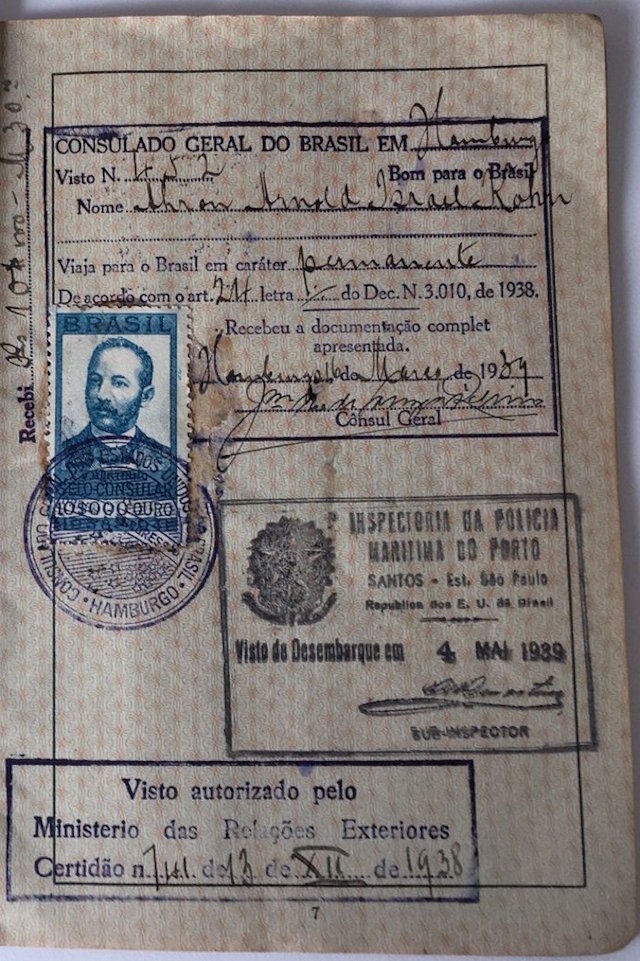 CONSULADO GERAL DO BRASIL EM Hamburg
Visto N. 452 Bom para o Brasil
Nome Ahron Arnold Israel Kohn
Viaja para o Brasil em caráter permanente
De acordo com o art. 24 letra do Dec. N. 3.010, de 1938.
Recebeu a documentação complet
apresentada.
Hamburgo 16 de Março de 1939
Cônsul Geral
Recebi
BRASIL
10$000 OURO
HAMBURGO
INSPECTORIA DA POLICIA
MARITIMA DO PORTO
SANTOS - Est. São Paulo
Republica dos E. U. do Brasil
Visto de Desembarque em 4 MAI 1939
SUB-INSPECTOR
Visto autorizado pelo
Ministerio das Relações Exteriores
Certidão n. de 13 de XII de 1938
7